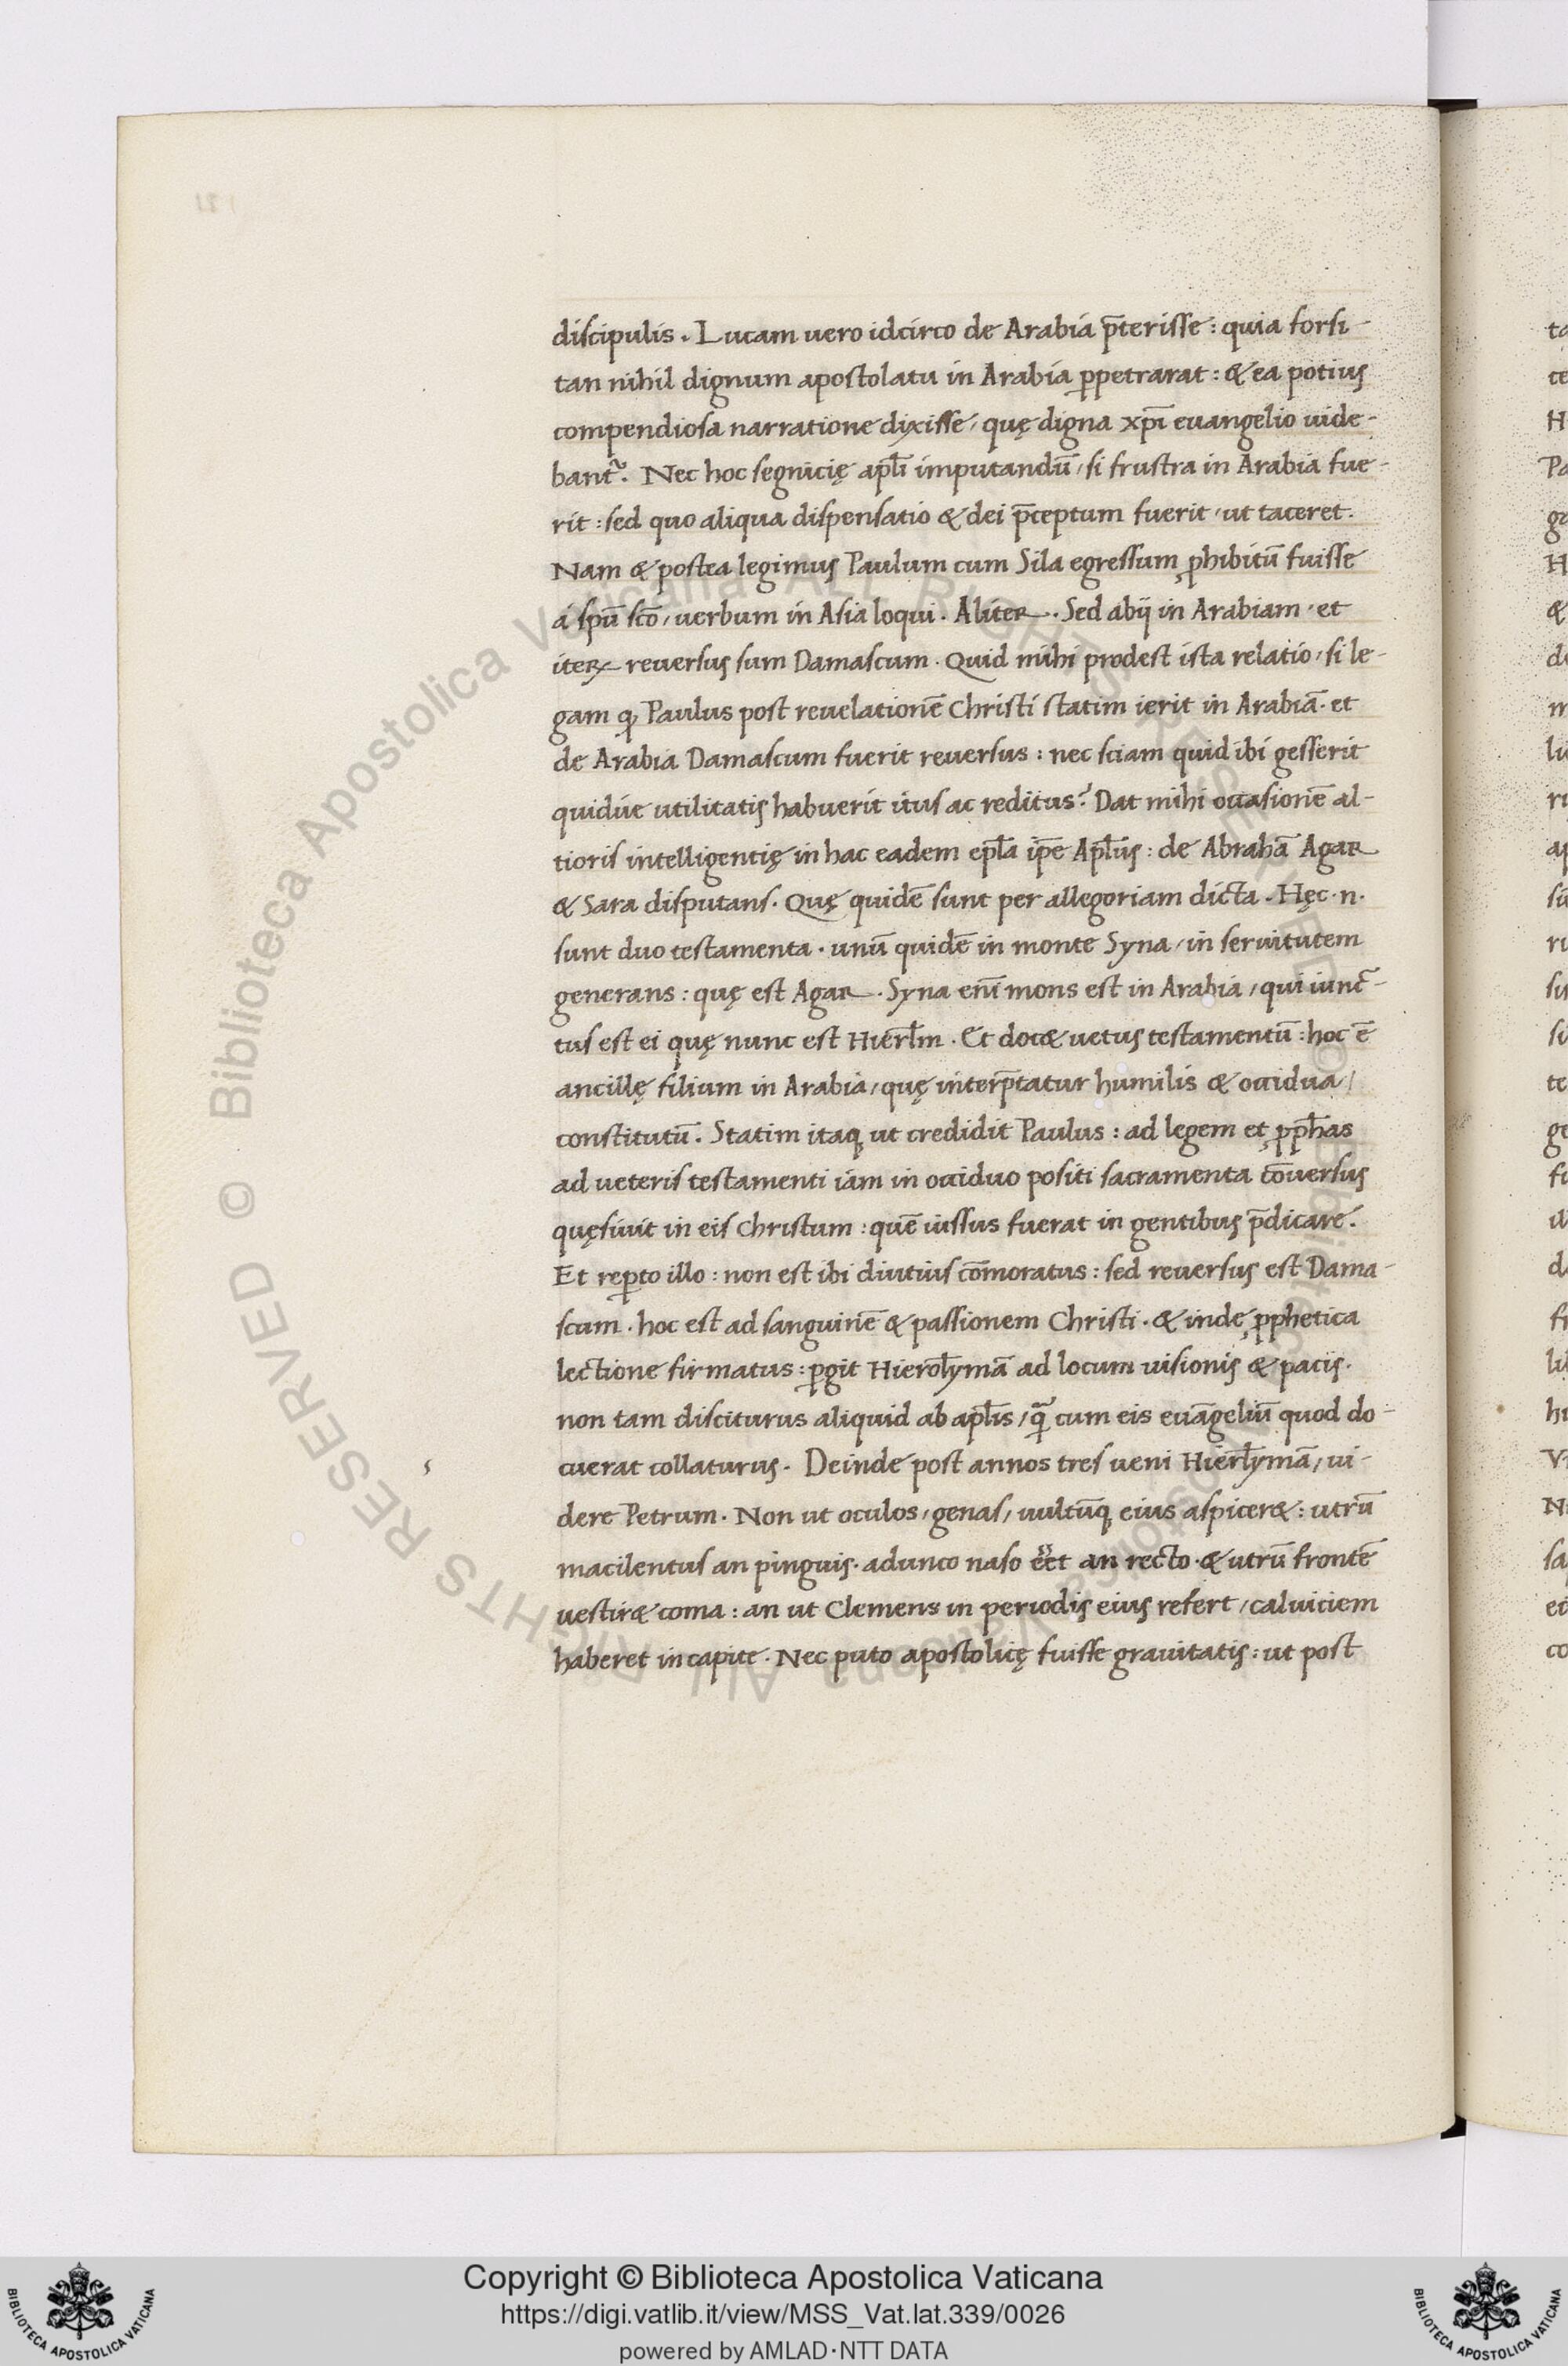 discipulis. Lucam uero idcirco de Arabia p̄terisse: quia forsi-
tan nihil dignum apostolatu in Arabia ꝑpetrarat: & ea potius
compendiosa narratione dixisse, quę digna xp̄i euangelio uide-
bant᷑. Nec hoc segnicię apl̄i imputandū, si frustra in Arabia fue-
rit: sed quo aliqua dispensatio & dei p̄ceptum fuerit, ut taceret.
Nam & postea legimus Paulum cum Sila egressum ꝓhibitū fuisse
á spū scō, uerbum in Asia loqui. Aliter. Sed abij in Arabiam, et
iteꝝ reuersus sum Damascum. Quid mihi prodest ista relatio, si le-
gam ꝙ Paulus post reuelationē Christi statim ierit in Arabiā. et
de Arabia Damascum fuerit reuersus: nec sciam quid ibi gesserit
quidúe utilitatis habuerit itus ac reditus? Dat mihi occasionē al-
tioris intelligentię in hac eadem epl̄a ip̄e Apl̄us: de Abrahā Agar
& Sara disputans. Quę quidē sunt per allegoriam dicta. Hęc .n.
sunt duo testamenta. unū quidē in monte Syna, in seruitutem
generans: quę est Agar. Syna enī mons est in Arabia, qui iunc-
tus est ei quę nunc est Hierl̄m. Et doc& uetus testamentū: hoc ē
ancillę filium in Arabia, quę interp̄tatur humilis & occidua,
constitutū. Statim itaq; ut credidit Paulus: ad legem et ꝓpħas
ad ueteris testamenti iám in occiduo positi sacramenta cōuersus
quęsiuit in eis Christum: quē iussus fuerat in gentibus p̄dicare.
Et reꝑto illo: non est ibi diutius cōmoratus: sed reuersus est Dama-
scum. hoc est ad sanguinē & passionem Christi. & inde ꝓphetica
lectione firmatus: ꝑgit Hierol̄ymā ad locum uisionis & pacis.
non tam disciturus aliquid ab apl̄is, q̄ cum eis euāgeliū quod do-
cuerat collaturus. Deinde post annos tres ueni Hierl̄ymā, ui-
dere Petrum. Non ut oculos, genas, uultūq; eius aspicer&: utrū
macilentus an pinguis. adunco naso eēt an recto. & utrū frontē
uestir& coma: an ut Clemens in periodis eius refert, caluiciem
haberet in capite. Nec puto apostolicę fuisse grauitatis: ut post
© Biblioteca Apostolica Vaticana ALL RIGHTS RESERVED © Biblioteca Apostolica Vaticana ALL RIGHTS RESERVED
Copyright © Biblioteca Apostolica Vaticana
https://digi.vatlib.it/view/MSS_Vat.lat.339/0026
powered by AMLAD·NTT DATA
BIBLIOTECA APOSTOLICA VATICANA
BIBLIOTECA APOSTOLICA VATICANA